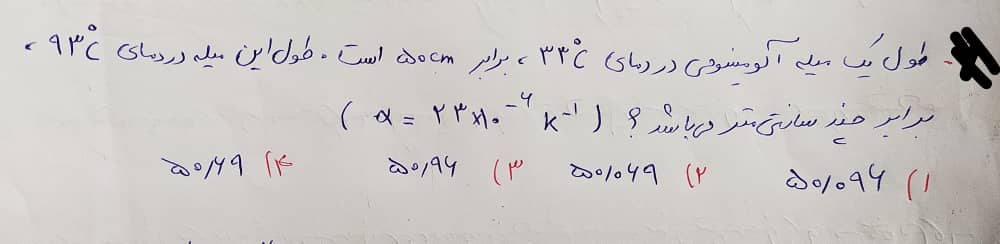 طول یک میله آلومینیومی در دمای ۳۳°C ، برابر ۵۰cm است. طول این میله در دمای ۹۳°C ،
برابر چند سانتی متر می باشد ؟ ( α = ۲۳×۱۰⁻⁶ K⁻¹ )
۱) ۵۰/۰۹۶ ۲) ۵۰/۰۶۹ ۳) ۵۰/۹۶ ۴) ۵۰/۶۹